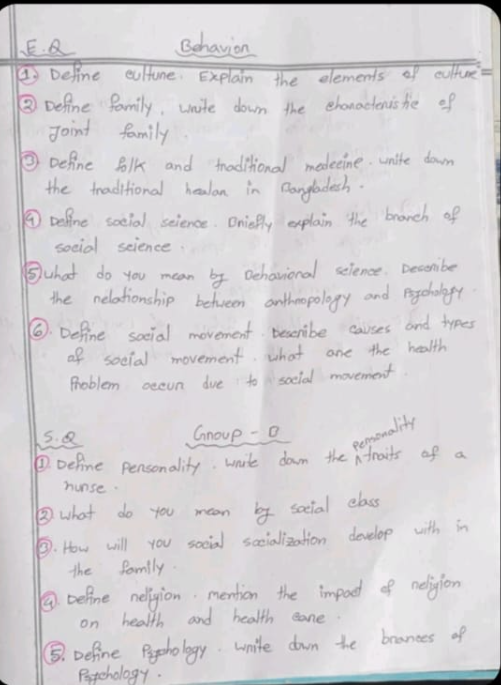 E.Q Behavior
1. Define culture. Explain the elements of culture
2 Define family, write down the characteristic of
Joint family.
3 Define folk and traditional medecine. write down
the traditional healar in Bangladesh.
4 Define social science. Briefly explain the branch of
social science.
5 What do you mean by Behavioral science. Describe
the relationship between anthropology and Psychology.
6. Define social movement. Describe causes and types
of social movement. what are the health
Problem occur due to social movement.
S.Q Group - B
1 Define Personality. write down the personality traits of a
nurse.
2 What do you mean by social class
3. How will you social socialization develop with in
the family.
4. Define religion. mention the impact of religion
on health and health care.
5. Define Psychology. write down the brances of
Psychology.